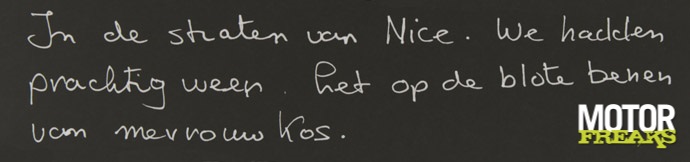 In de straten van Nice. We hadden
prachtig weer. Let op de blote benen
van mevrouw Kos.
MOTOR
FREAKS